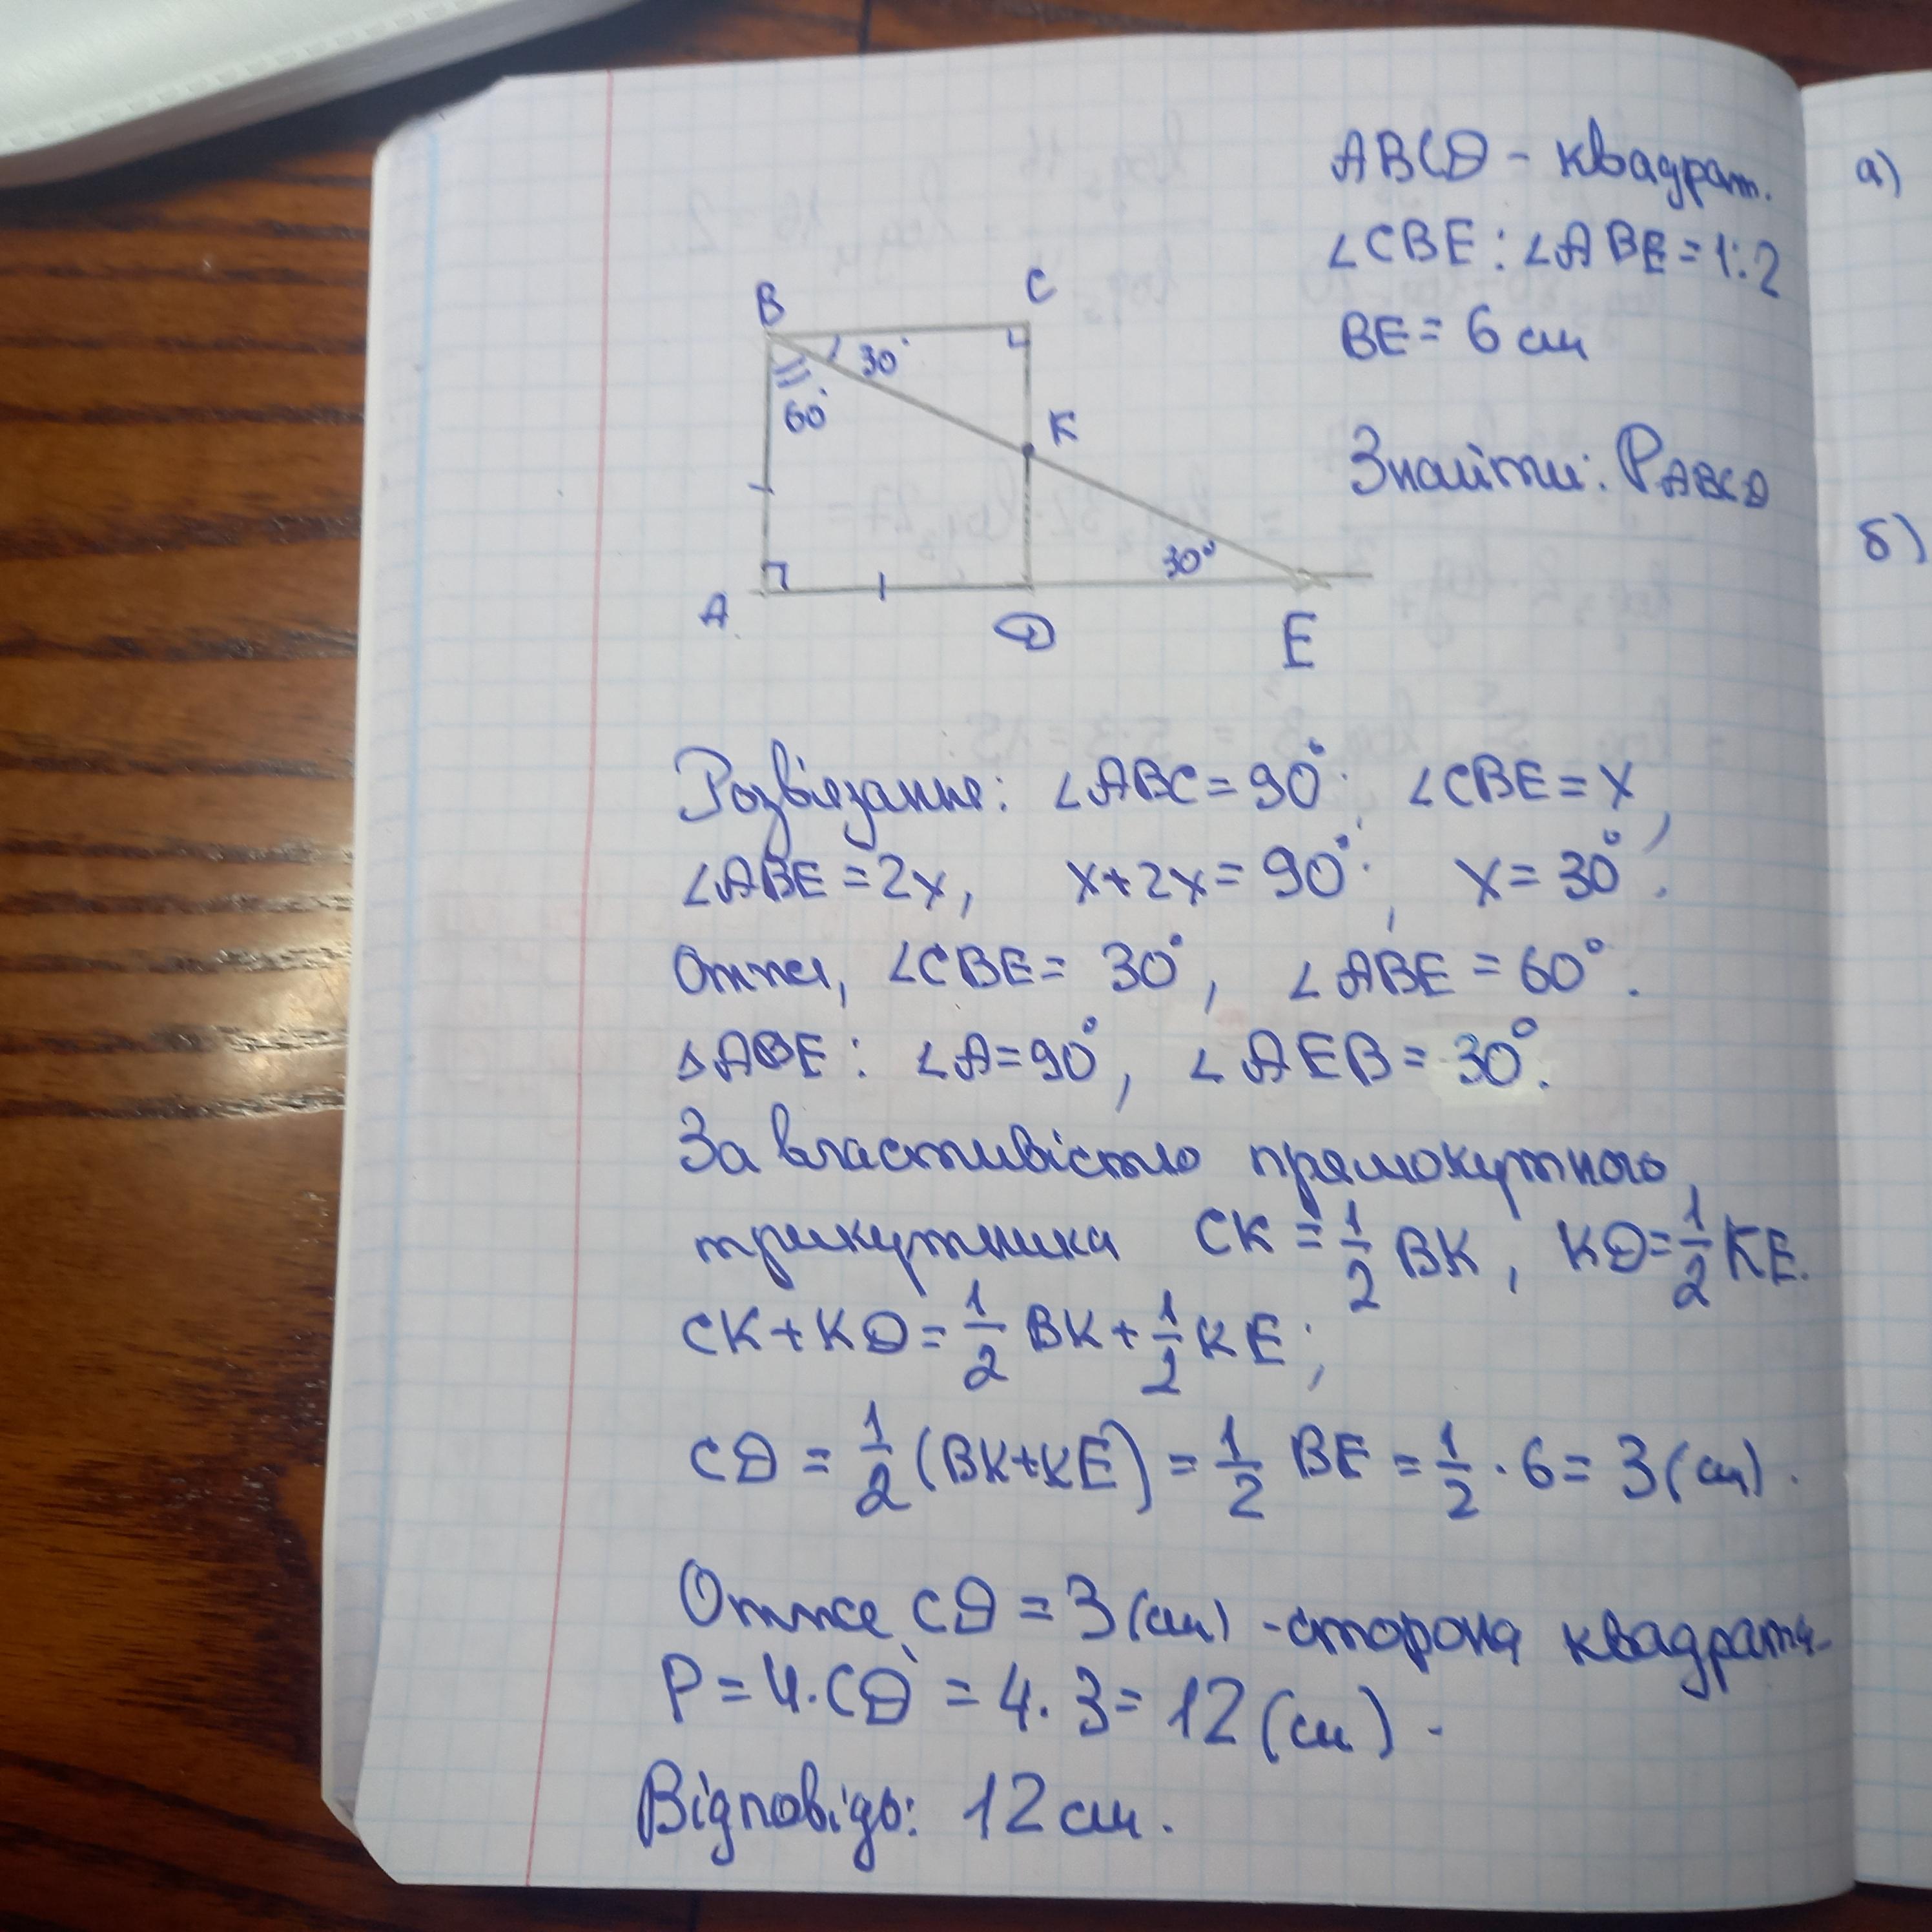 ABCD - квадрат.
∠CBE : ∠ABE = 1:2
BE = 6 см
Знайти: P ABCD
а)
б)
B
C
30°
60°
K
30°
A
D
E
Розв'язання: ∠ABC = 90°; ∠CBE = x,
∠ABE = 2x, x+2x = 90°; x = 30°.
Отже, ∠CBE = 30°, ∠ABE = 60°.
△ABE: ∠A = 90°, ∠AEB = 30°.
За властивістю прямокутного
трикутника CK = 1/2 BK, KD = 1/2 KE.
CK + KD = 1/2 BK + 1/2 KE;
CD = 1/2 (BK+KE) = 1/2 BE = 1/2 · 6 = 3 (см).
Отже, CD = 3 (см) - сторона квадрата.
P = 4·CD = 4·3 = 12 (см).
Відповідь: 12 см.